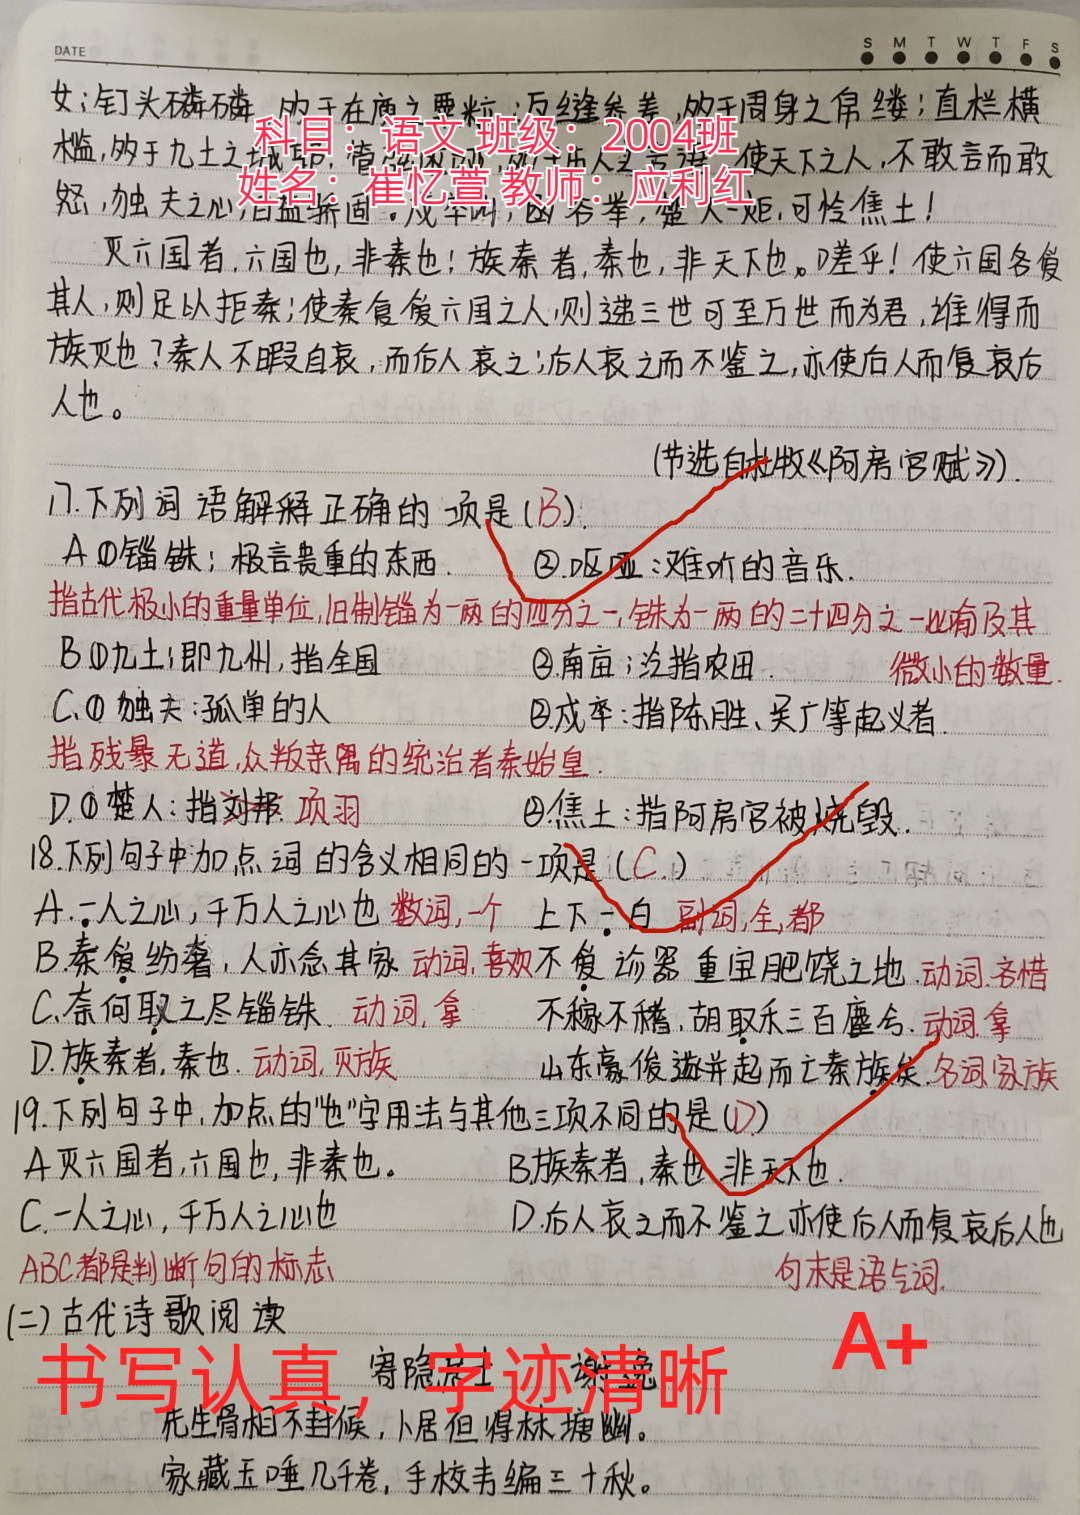 DATE
S M T W T F S
女；钉头磷磷，多于在庾之粟粒；瓦缝参差，多于周身之帛缕；直栏横
槛，多于九土之城郭；管弦呕哑，多于市人之言语。使天下之人，不敢言而敢
科目：语文 班级：2004班
怒，独夫之心，日益骄固。戍卒叫，函谷举，楚人一炬，可怜焦土！
姓名：崔忆萱 教师：应利红
灭六国者，六国也，非秦也！族秦者，秦也，非天下也。嗟乎！使六国各爱
其人，则足以拒秦；使秦复爱六国之人，则递三世可至万世而为君，谁得而
族灭也？秦人不暇自哀，而后人哀之；后人哀之而不鉴之，亦使后人而复哀后
人也。
（节选自杜牧《阿房宫赋》）.
17.下列词语解释正确的一项是（B）.
A.①锱铢；极言贵重的东西. ②.呕哑：难听的音乐.
指古代极小的重量单位，旧制锱为一两的四分之一，铢为一两的二十四分之一比喻及其
微小的数量.
B.①九土；即九州，指全国 ②.南亩；泛指农田.
C.①独夫：孤单的人 ②.戍卒：指陈胜、吴广等起义者.
指残暴无道，众叛亲离的统治者秦始皇.
D.①楚人：指刘邦. 项羽 ②.焦土：指阿房宫被烧毁.
18.下列句子中加点词的含义相同的一项是（C.）
A.一人之心，千万人之心也 数词，一个 上下一白 副词，全，都
B.秦爱纷奢，人亦念其家 动词，喜欢 不爱珍器重宝肥饶之地.动词.吝惜
C.奈何取之尽锱铢. 动词，拿 不稼不穑，胡取禾三百廛兮.动词.拿
D.族秦者，秦也. 动词，灭族 山东豪俊遂并起而亡秦族矣.名词家族
19.下列句子中，加点的"也"字用法与其他三项不同的是（D）
A.灭六国者，六国也，非秦也。 B.族秦者，秦也，非天下也.
C.一人之心，千万人之心也 D.后人哀之而不鉴之亦使后人而复哀后人也
ABC都是判断句的标志 句末是语气词.
（二）古代诗歌阅读
A+
寄隐居士 谢逸
书写认真，字迹清晰
先生骨相不封候，卜居但得林塘幽。
家藏玉唾几千卷，手校韦编三十秋。